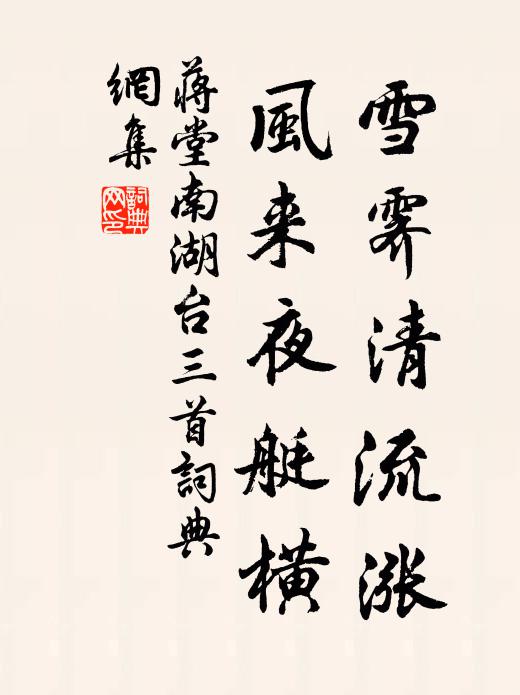 雪霽清流涨
風来夜艇横
蔣堂南湖台三首詞典
網集
詞典网印